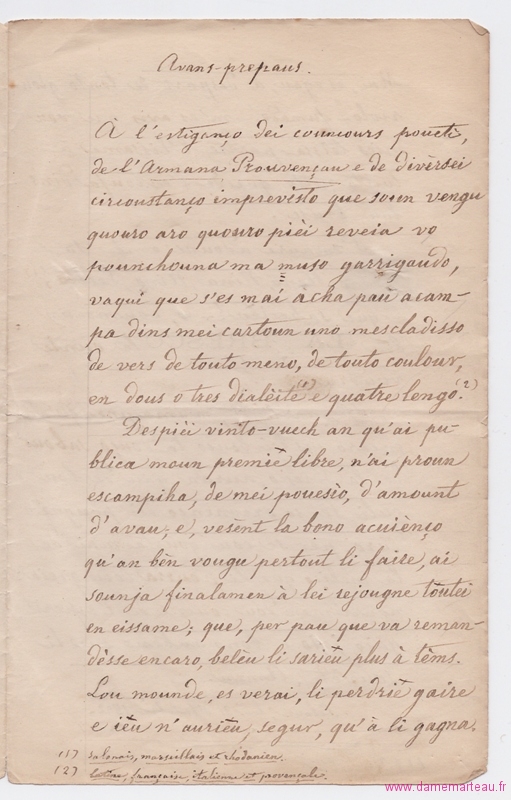 Avans-prepaus.
À l'estiganço dei councours poueti,
de l'Armana Prouvençau e de divèrsei
circoustanço imprevisto que soun vengu
quouro aro quouro pièi reveia vo
pounchouna ma muso garrigaudo,
vaqui que s'es mai acha paü acam-
pa dins mei cartoun uno mescladisso
de vers de touto meno, de touto coulour,
en dous o tres dialèite (1) e quatre lengo. (2)
Despièi vinto-vuech an qu'ai pu-
blica moun premiè libre, n'ai proun
escampiha, de mei pouesìo, d'amount
d'avau, e, vesènt la bono acuiènço
qu'an bèn vougu pertout li faire, ai
sounja finalamen à lei rejougne toutei
en eissame; que, per pau que va reman-
dèsse encaro, belèu li sariéu plus à tèms.
Lou mounde, es verai, li perdrié gaire
e iéu n'auriéu, segur, qu'à li gagna.
(1) salonais, marseillais et rhodanien.
(2) latine, française, italienne et provençale.
www.damemarteau.fr